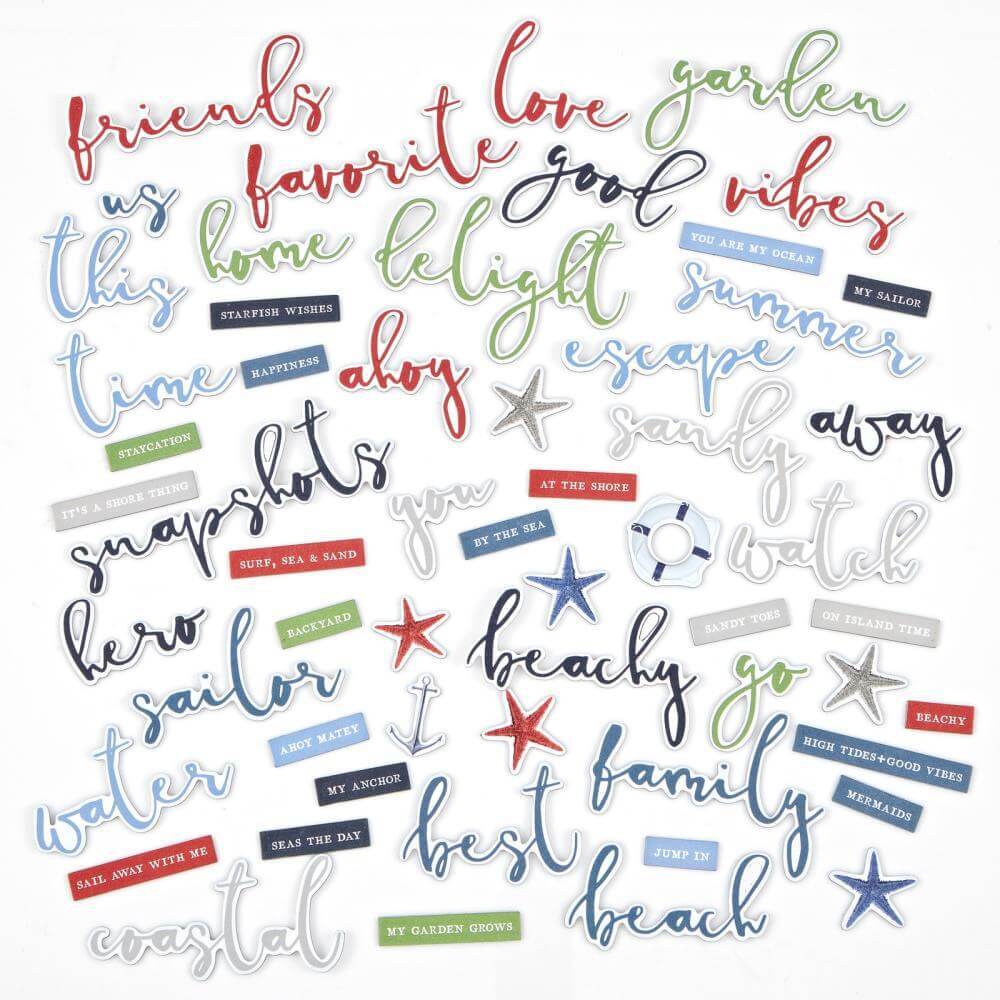 friends
love
garden
favorite
good
vibes
us
this
home
delight
YOU ARE MY OCEAN
summer
MY SAILOR
STARFISH WISHES
time
HAPPINESS
ahoy
escape
sandy
away
STAYCATION
IT'S A SHORE THING
snapshots
you
AT THE SHORE
BY THE SEA
watch
SURF, SEA & SAND
hero
BACKYARD
beachy
SANDY TOES
ON ISLAND TIME
sailor
go
BEACHY
AHOY MATEY
HIGH TIDES+GOOD VIBES
water
MY ANCHOR
family
MERMAIDS
best
SEAS THE DAY
JUMP IN
SAIL AWAY WITH ME
beach
coastal
MY GARDEN GROWS